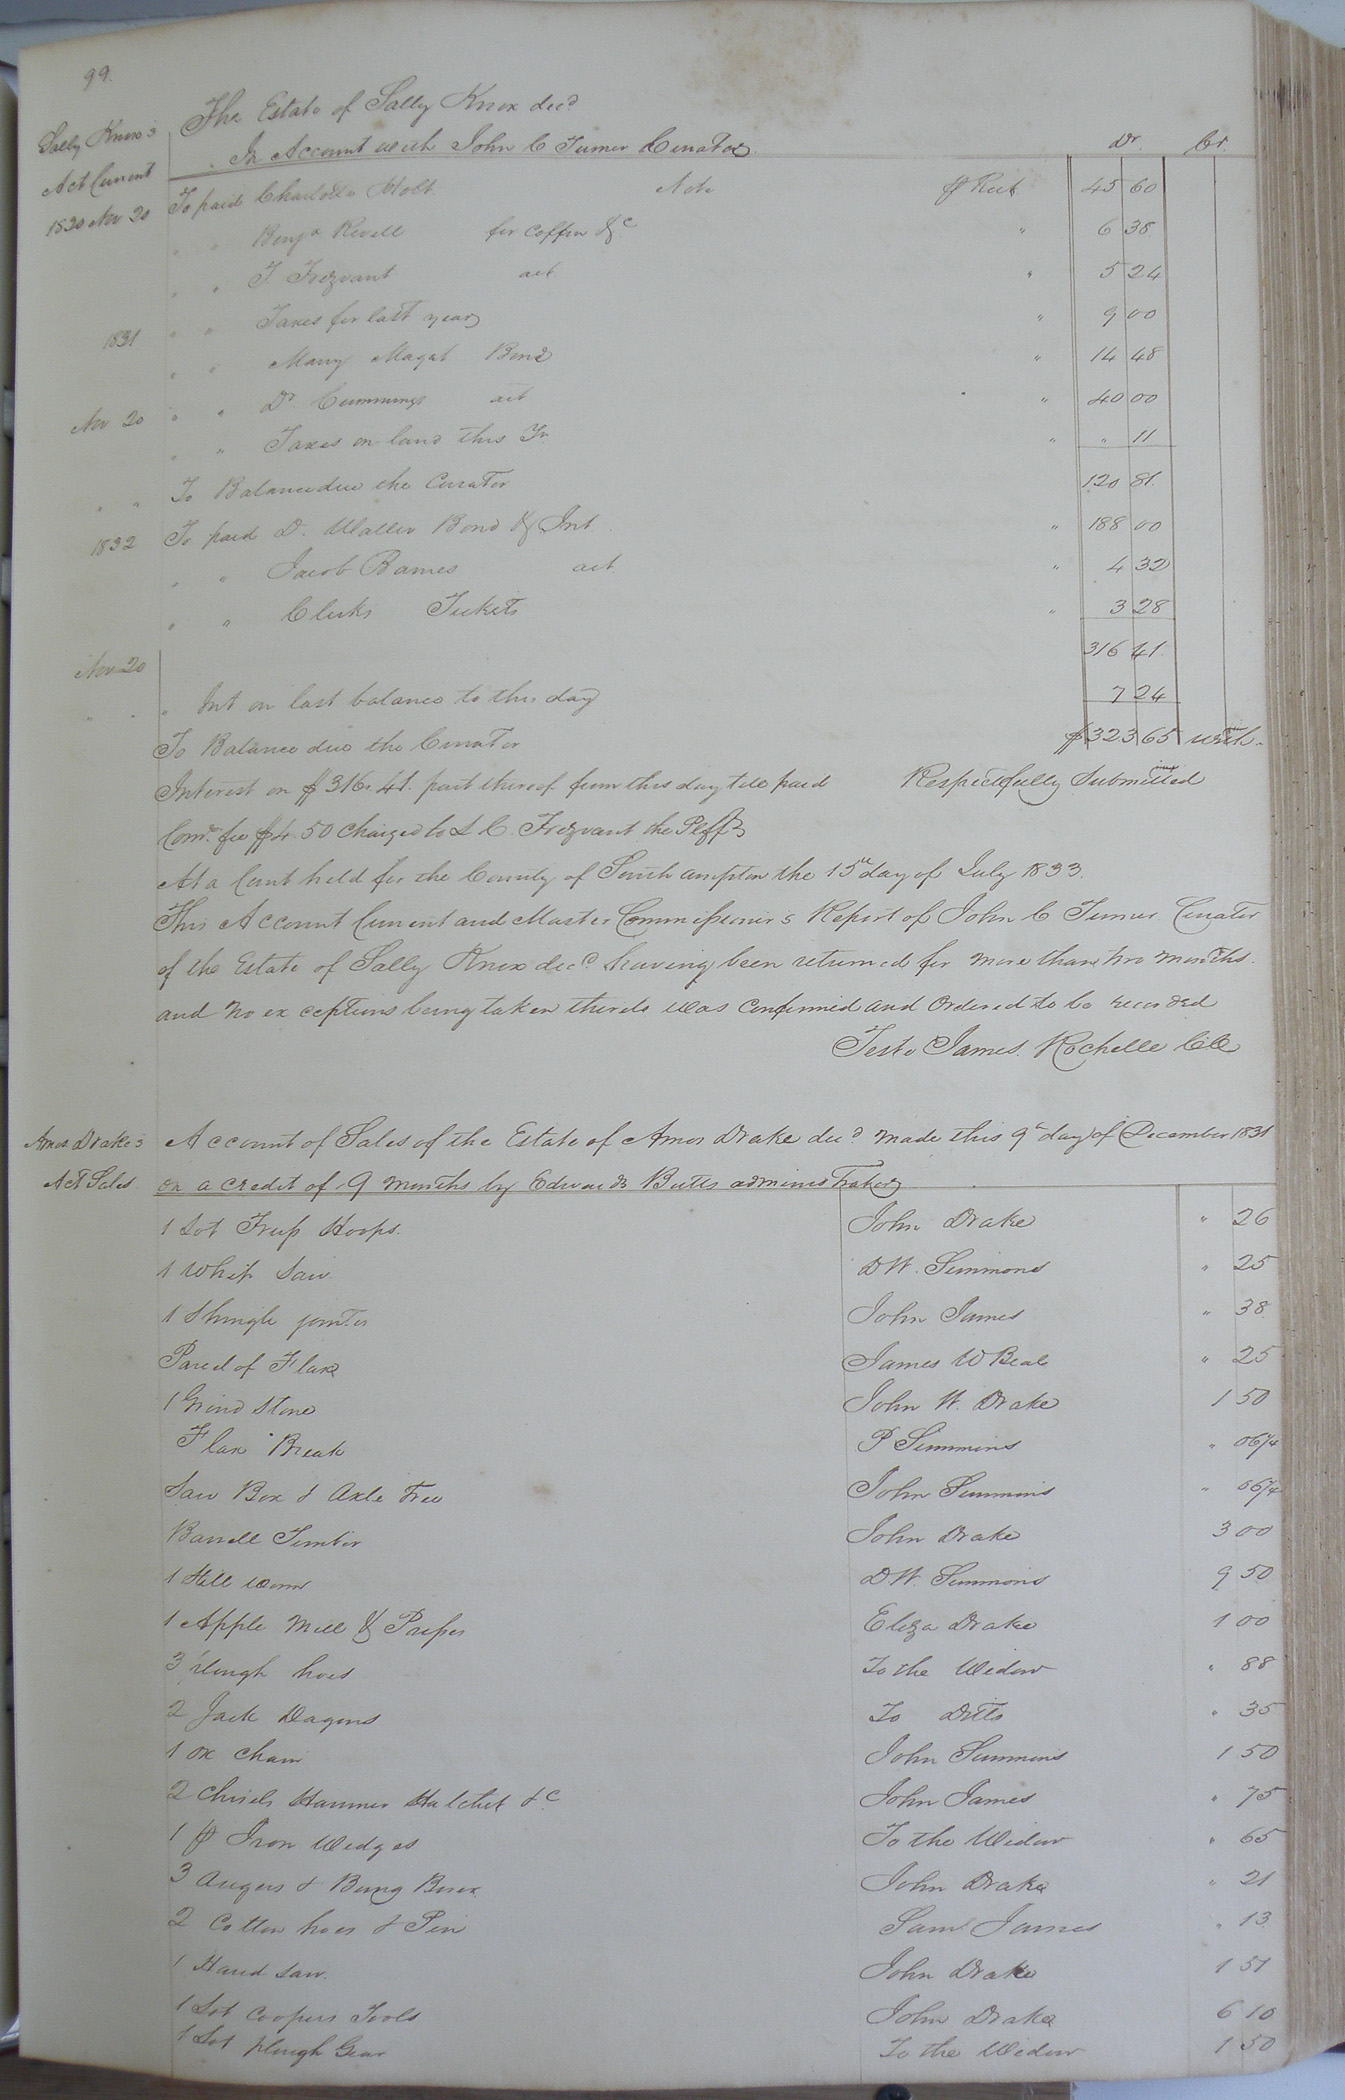 99.
The Estate of Sally Knox decd
Sally Knox's
In Account with John C Turner Curator Dr. Cr.
Act Current
1830 Nov 20 To paid Charlotte Holt Note pr Rect 45 60
" " Benja Revell for Coffin &c " 6 38
" " T. Trezvant act " 5 24
1831 " " Taxes for last year " 9 00
" " Mary Magat Bond " 14 48
Nov 20 " " Dr Cummings act " 40 00
" " Taxes on land this Yr " " 11
" " To Balance due the Curator 120 81
1832 To paid D. Waller Bond & Int " 188 00
" " Jacob Barnes act " 4 32
" " Clerks Tickets " 3 28
Nov 20 316 41
" " " Int on last balance to this day 7 24
To Balance due the Curator $323 65 with
Interest on $316.41 part thereof from this day till paid Respectfully Submitted
Comr. fee $4.50 Charged to L C. Trezvant the Plff
At a Court held for the County of Southampton the 15th day of July 1833.
This Account Current and Master Commissioner's Report of John C Turner Curator
of the Estate of Sally Knox decd having been returned for more than two months
and no exceptions being taken thereto was confirmed and Ordered to be recorded
Teste James Rochelle CC
Amos Drake's Account of Sales of the Estate of Amos Drake decd made this 9th day of December 1831
Act Sales on a credit of 9 months by Edwards Butts administrator
1 Lot Truss Hoops. John Drake " 26
1 Whip Saw D W. Simmons " 25
1 Shingle jointer John James " 38
Parcel of Flax James W Beal " 25
1 Grind Stone John W. Drake 1 50
Flax Break P Simmins " 06 1/4
Saw Box & Axle Tree John Simmins " 06 1/4
Barrell Timber John Drake 3 00
1 Still worm D W. Simmons 9 50
1 Apple Mill & Presses Eliza Drake 1 00
3 Plough hoes To the Widow " 88
2 Jack Wagons To Ditto " 35
1 ox chain John Simmins 1 50
2 Chisels Hammer Hatchet &c John James " 75
1 pr Iron Wedges To the Widow " 65
3 Augers & Bung Borer John Drake " 21
2 Cotton hoes & Pin Saml James " 13
1 Hand saw. John Drake 1 51
1 Lot Coopers Tools John Drake 6 10
1 Lot plough Gear To the Widow 1 50